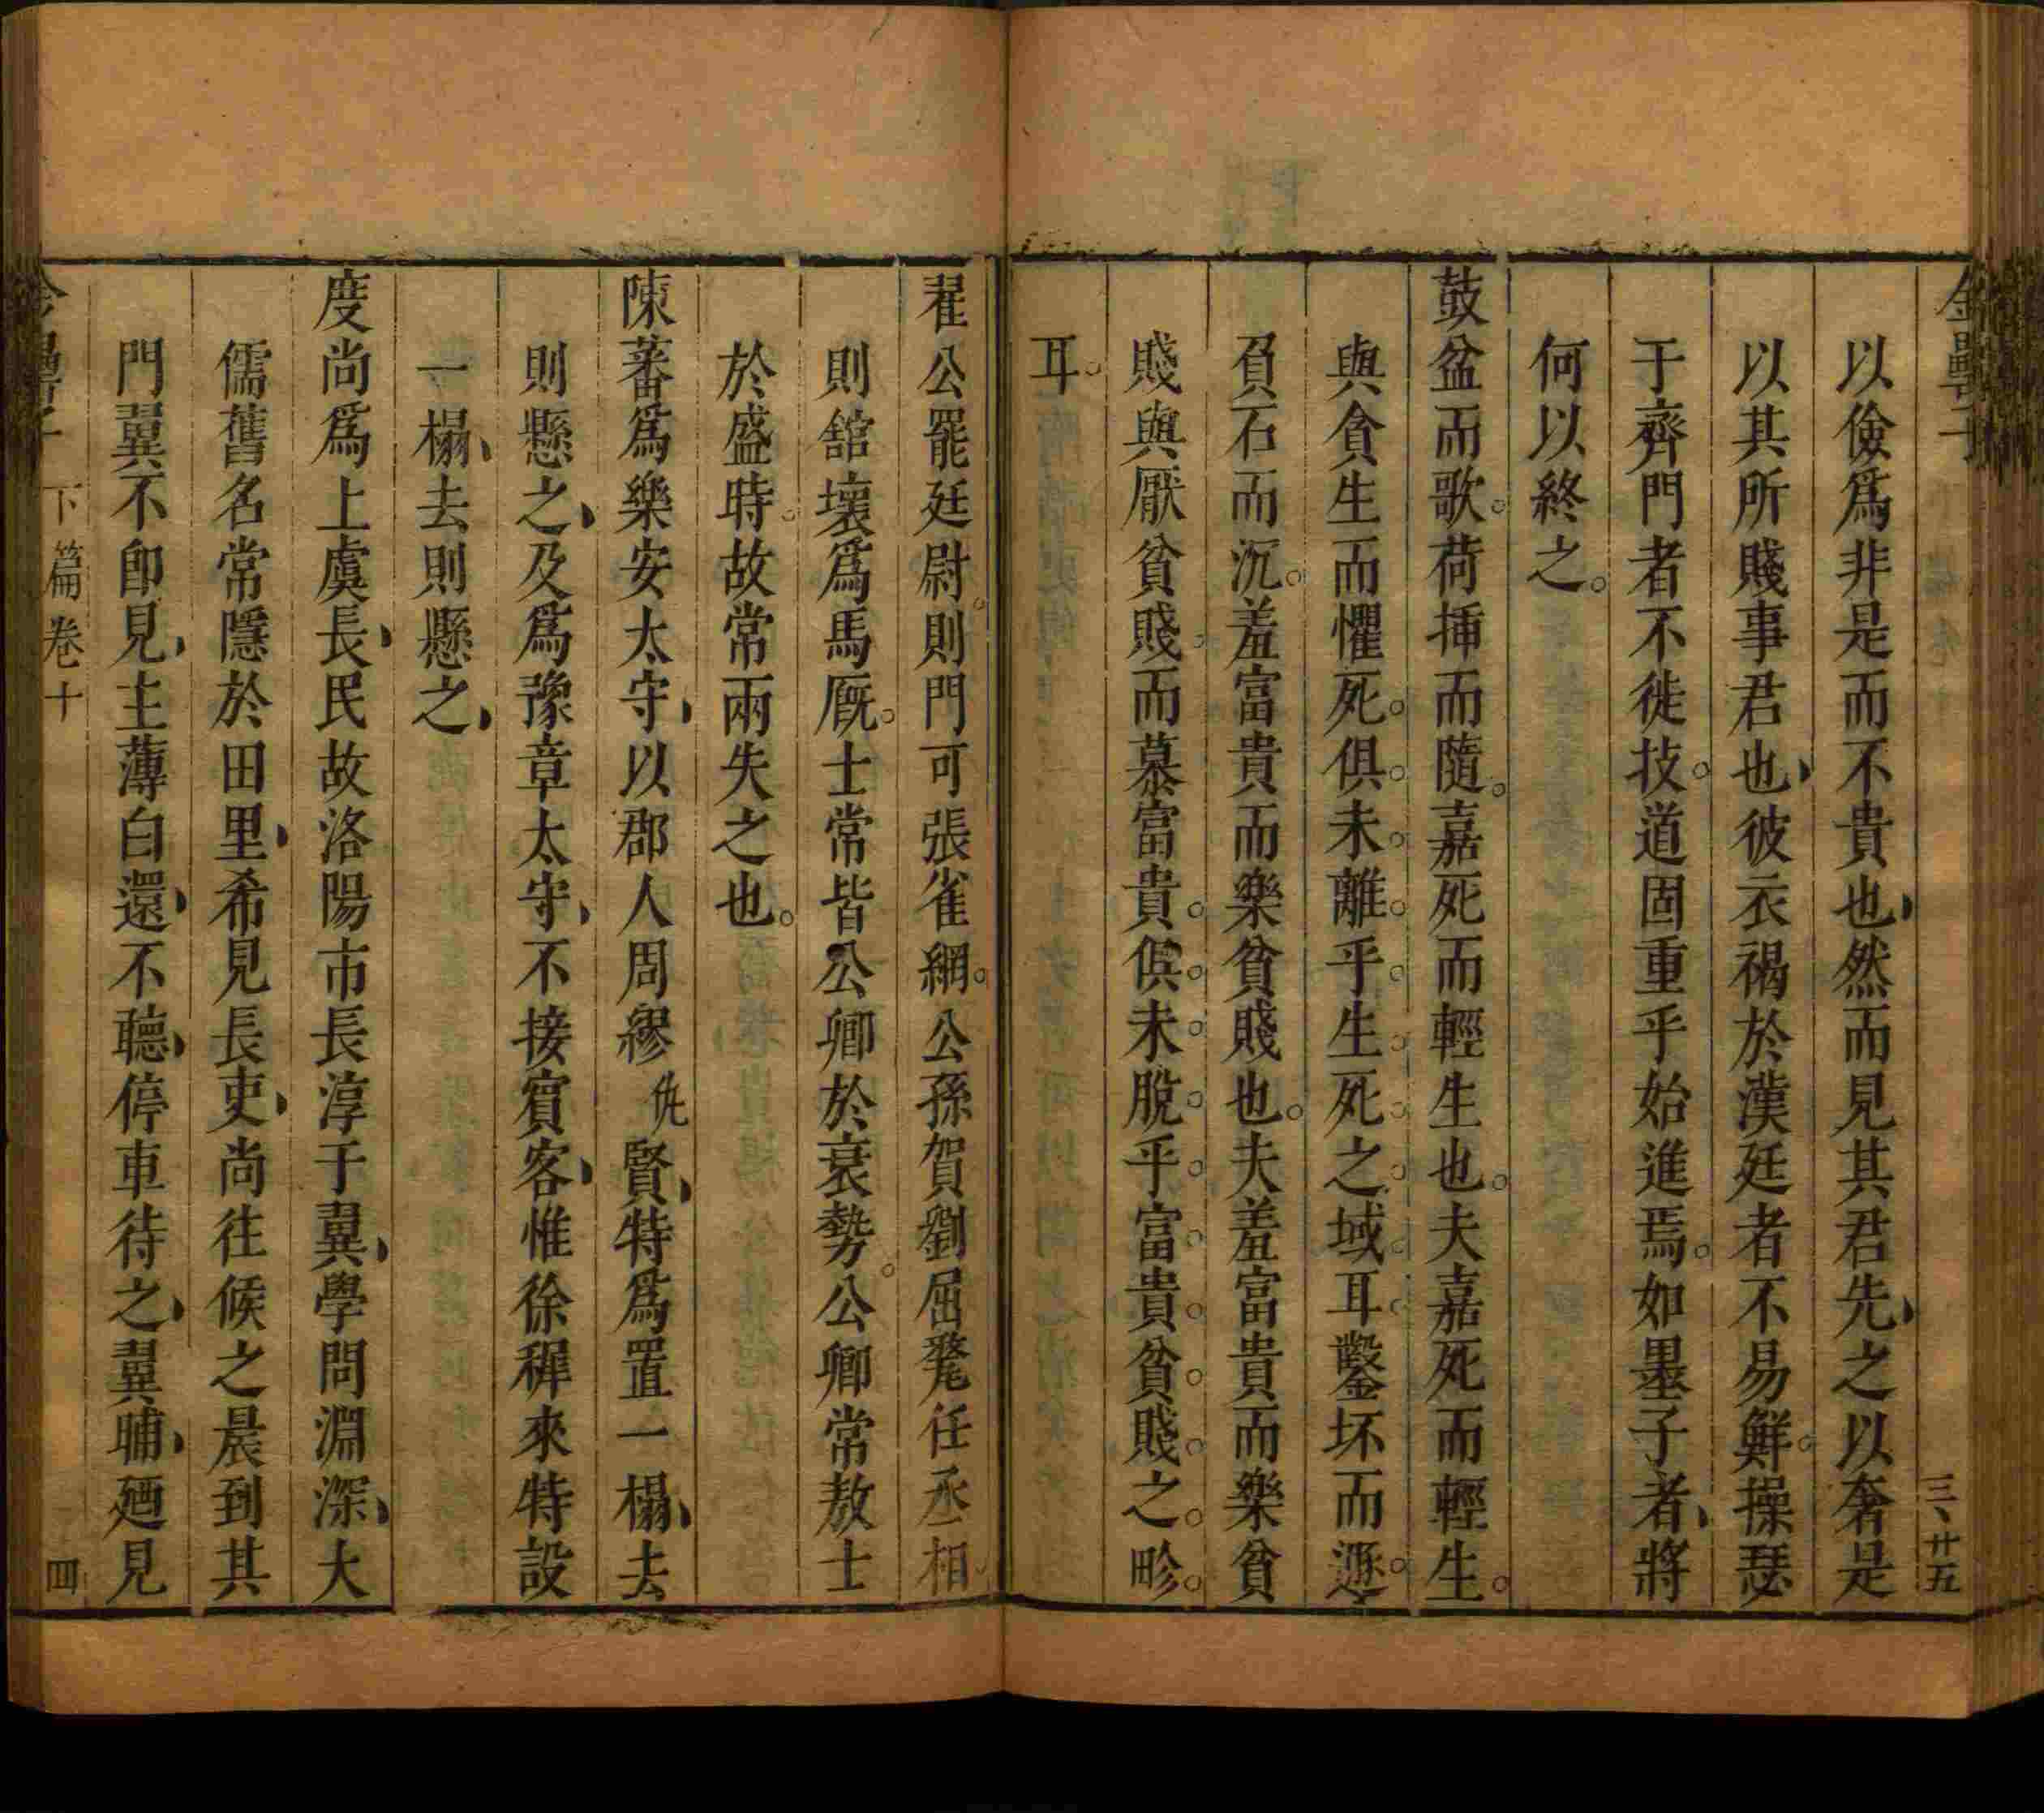 金罍子
三、廿五
以儉爲非是而不貴也然而見其君先之以奢是
以其所賤事君也彼衣褐於漢廷者不易鮮操瑟
于齊門者不徙技道固重乎始進焉如墨子者將
何以終之
鼓盆而歌荷揷而隨嘉死而輕生也夫嘉死而輕生
與貪生而懼死俱未離乎生死之域耳鑿坏而遯
負石而沉羞富貴而樂貧賤也夫羞富貴而樂貧
賤與厭貧賤而慕富貴俱未脫乎富貴貧賤之畛
耳
翟公罷廷尉則門可張雀網公孫賀劉屈氂任丞相
則舘壞爲馬厩士常皆公卿於衰勢公卿常敖士
於盛時故常兩失之也
陳蕃爲樂安太守以郡人周繆 賢特爲置一榻去
則懸之及爲豫章太守不接賓客惟徐稺來特設
一榻去則懸之
度尚爲上虞長民故洛陽市長淳于翼學問淵深大
儒舊名常隱於田里希見長吏尚往候之晨到其
門翼不卽見主薄白還不聽停車待之翼晡廼見
下篇卷十
四